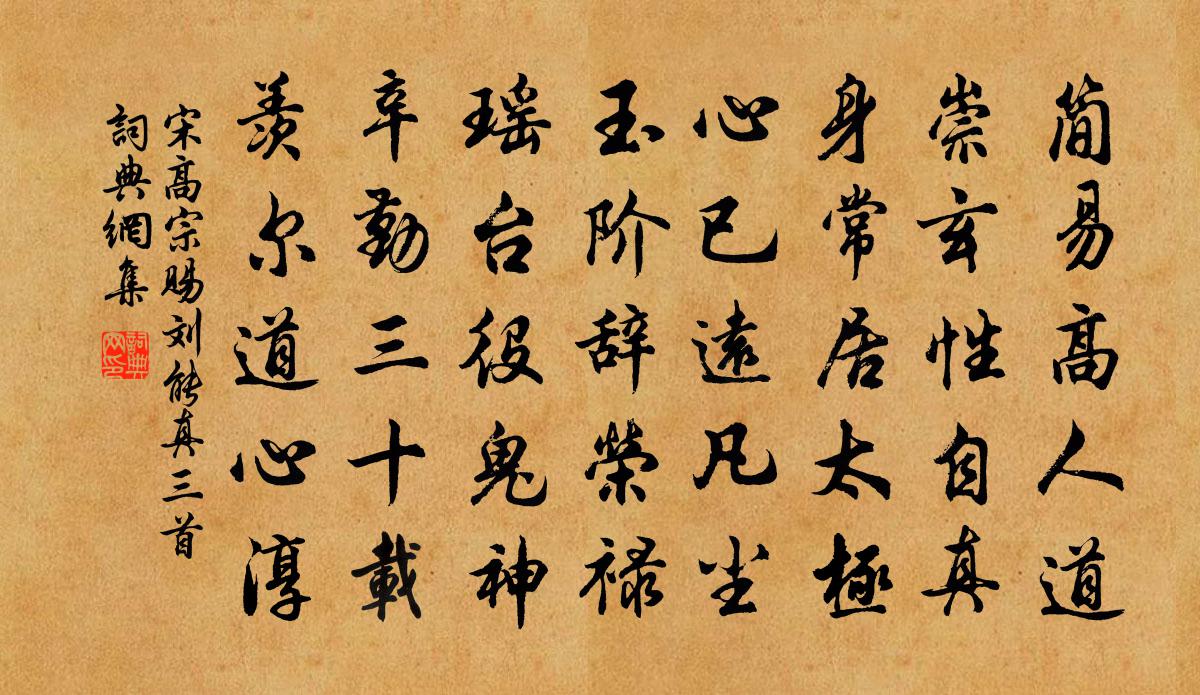 简易高人道
崇玄性自真
身常居太極
心已遠凡尘
玉阶辞榮禄
瑶台役鬼神
辛勤三十載
羨尔道心淳
宋高宗賜刘能真三首
詞典網集
詞典网印